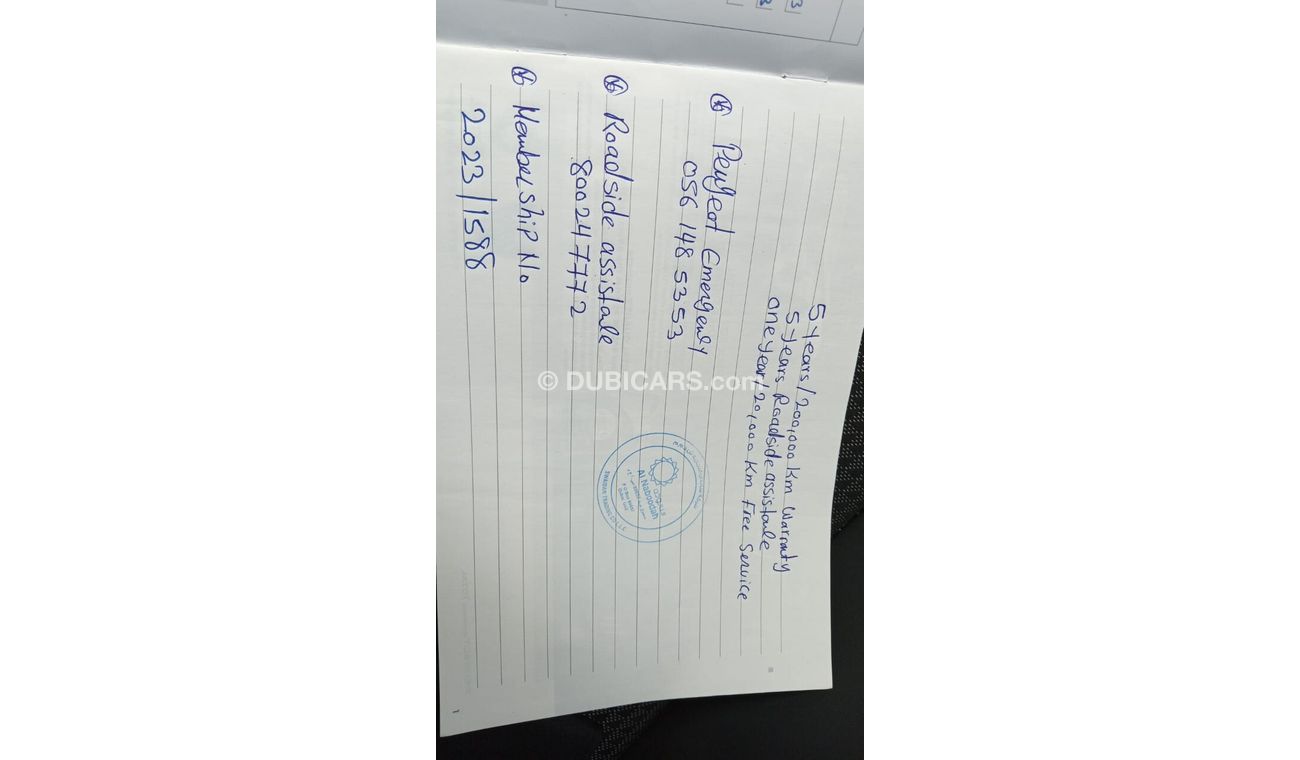 5 years / 200,000 km Warranty
5 years Roadside assistale
one year / 20,000 km Free Service
Peugeot Emergenly
056 148 5353
Roadside assistale
800247772
Membership No
2023/1588
Al Naboodah
© DUBICARS.com
1